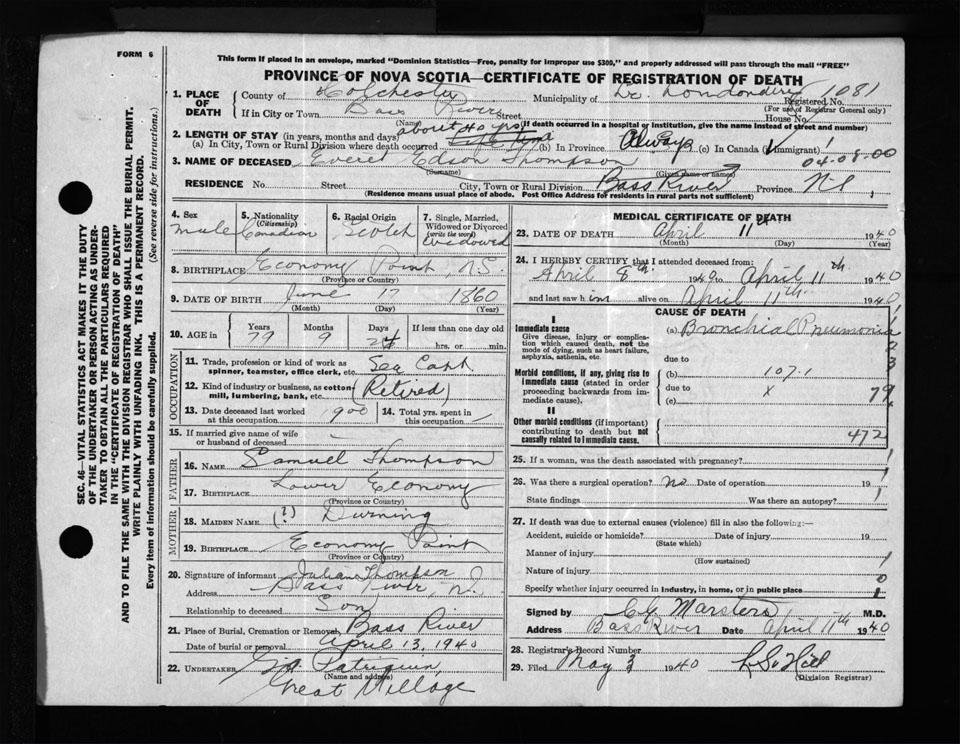 FORM 6
This form if placed in an envelope, marked "Dominion Statistics—Free, penalty for improper use $300," and properly addressed will pass through the mail "FREE"
PROVINCE OF NOVA SCOTIA—CERTIFICATE OF REGISTRATION OF DEATH
1. PLACE OF DEATH
County of Colchester Municipality of Londonderry Registered No. 1081
(For use of Registrar General only)
If in City or Town Bass River Street House No.
(Name) (If death occurred in a hospital or institution, give the name instead of street and number)
2. LENGTH OF STAY (in years, months and days) about 40 yrs
(a) In City, Town or Rural Division where death occurred (b) In Province Always (c) In Canada (if immigrant)
3. NAME OF DECEASED Everet Edson Thompson 04-08-00
(Surname) (Given name or names)
RESIDENCE No. Street City, Town or Rural Division Bass River Province N.S.
(Residence means usual place of abode. Post Office Address for residents in rural parts not sufficient)
4. Sex male
5. Nationality (Citizenship) Canadian
6. Racial Origin Scotch
7. Single, Married, Widowed or Divorced (write the word) Widowed
8. BIRTHPLACE Economy Point, N.S.
(Province or Country)
9. DATE OF BIRTH June 17 1860
(Month) (Day) (Year)
10. AGE in Years 79 Months 9 Days 24 If less than one day old hrs. or min.
OCCUPATION
11. Trade, profession or kind of work as spinner, teamster, office clerk, etc. Sea Capt
12. Kind of industry or business, as cotton-mill, lumbering, bank, etc. (Retired)
13. Date deceased last worked at this occupation 1900
14. Total yrs. spent in this occupation
15. If married give name of wife or husband of deceased
FATHER
16. NAME Samuel Thompson
17. BIRTHPLACE Lower Economy
(Province or Country)
MOTHER
18. MAIDEN NAME (?) Durning
19. BIRTHPLACE Economy Point
(Province or Country)
20. Signature of informant Julian Thompson
Address Bass River, N.S.
Relationship to deceased Son
21. Place of Burial, Cremation or Removal Bass River
Date of burial or removal April 13, 1940
22. UNDERTAKER Patriquin
(Name and address)
Great Village
MEDICAL CERTIFICATE OF DEATH
23. DATE OF DEATH April 11th 1940
(Month) (Day) (Year)
24. I HEREBY CERTIFY that I attended deceased from:
April 8th 1940 to April 11th 1940
and last saw him alive on April 11th 1940
CAUSE OF DEATH
I
Immediate cause
Give disease, injury or complication which caused death, not the mode of dying, such as heart failure, asphyxia, asthenia, etc.
(a) Bronchial Pneumonia
due to
Morbid conditions, if any, giving rise to immediate cause (stated in order proceeding backwards from immediate cause).
(b) 107.1
due to X 79
(c)
II
Other morbid conditions (if important) contributing to death but not causally related to immediate cause.
472
25. If a woman, was the death associated with pregnancy?
26. Was there a surgical operation? No Date of operation 19
State findings Was there an autopsy?
27. If death was due to external causes (violence) fill in also the following:—
Accident, suicide or homicide? Date of injury 19
(State which)
Manner of injury
(How sustained)
Nature of injury
Specify whether injury occurred in industry, in home, or in public place
Signed by Marsters M.D.
Address Bass River Date April 11th 1940
28. Registrar's Record Number
29. Filed May 3 1940
(Division Registrar)
SEC. 46—VITAL STATISTICS ACT MAKES IT THE DUTY
OF THE UNDERTAKER OR PERSON ACTING AS UNDER-
TAKER TO OBTAIN ALL THE PARTICULARS REQUIRED
IN THE "CERTIFICATE OF REGISTRATION OF DEATH"
AND TO FILE THE SAME WITH THE DIVISION REGISTRAR WHO SHALL ISSUE THE BURIAL PERMIT.
WRITE PLAINLY WITH UNFADING INK. THIS IS A PERMANENT RECORD.
Every item of information should be carefully supplied. (See reverse side for instructions.)